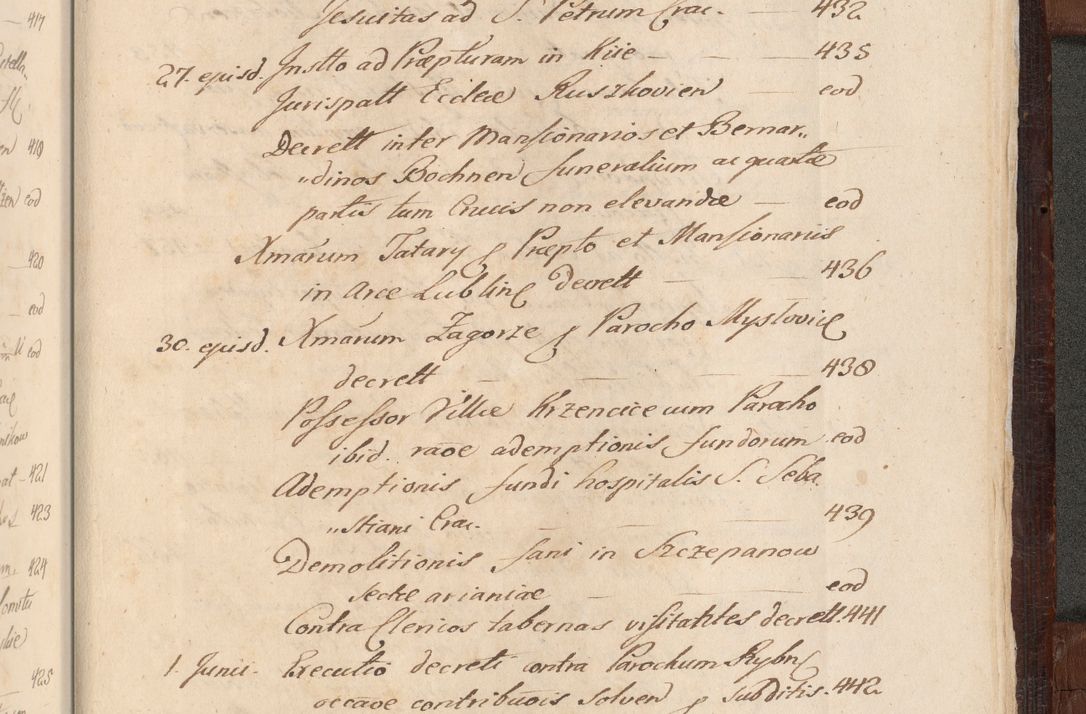 Jesuitas ad S. Petrum Crac. - 432
27. ejusd. Instto ad Præpturam in Kiie - - - 435
Jurispatt Ecclæ Ruszkovien - eod
Decrett inter Mansionarios et Bernar„
„dinos Bochnen funeralium ac quartæ
partis tam Crucis non elevandæ - eod
Xmarum Tatary p Præpto et Mansionariis
in Arce Lublin decrett - - - 436
30. ejusd. Xmarum Zagorze p Parocho Myslovic
decrett - - - 438
Possessor Villæ Krzencice cum Parocho
ibid. raõe ademptionis fundorum eod
Ademptionis fundi hospitalis S. Seba
„stiani Crac. - - - 439
Demolitionis fani in Szczepanow
sectæ arianiæ - - - eod
Contra Clericos tabernas visitantes decrett. 441
1. Junii. Executio decreti contra Parochum Rybn
occaõe contribuõis solven p subditis. 442
417
419
eod
420
eod
eod
421
423
424
425